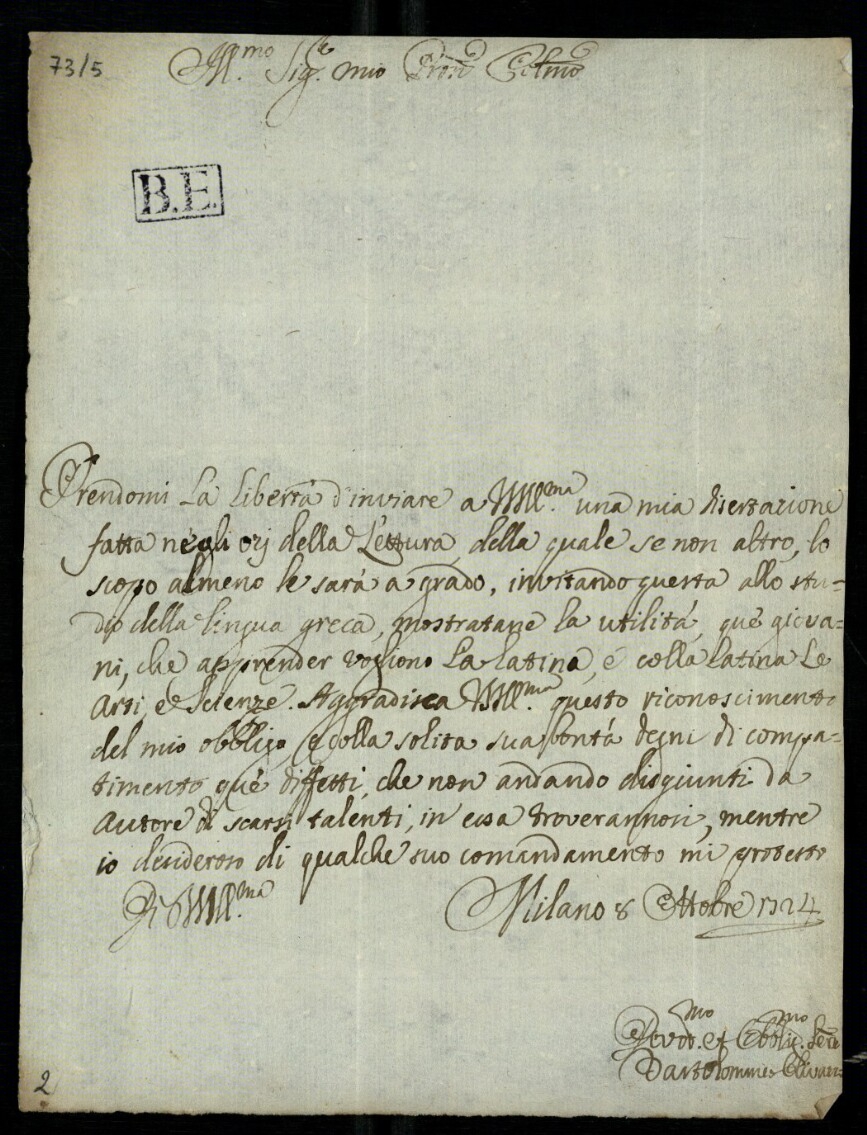 73/5
Ill.mo Sig.r mio Pron Colmo
B.E.
Prendomi la libertà d'inviare a VSIll.ma una mia disertazione
fatta negli ozj della Lettura, della quale se non altro, lo
scopo almeno le sarà a grado, invitando questa allo stu=
dio della lingua greca, mostratane la utilità, què giova=
ni, che apprender vogliono la latina, e colla latina le
Arti, e Scienze. Aggradisca VSIll.ma questo riconoscimento
del mio obbligo, e colla solita sua bontà degni di compa=
timento què diffetti, che non andando disgiunti da
Autore di scarsi talenti, in essa troverannosi, mentre
io desideroso di qualche suo comandamento mi protesto
Di VSIll.ma
Milano 8 Ottobre 1724
Devot.mo et Obblig.mo Sere
Bartolommeo
2